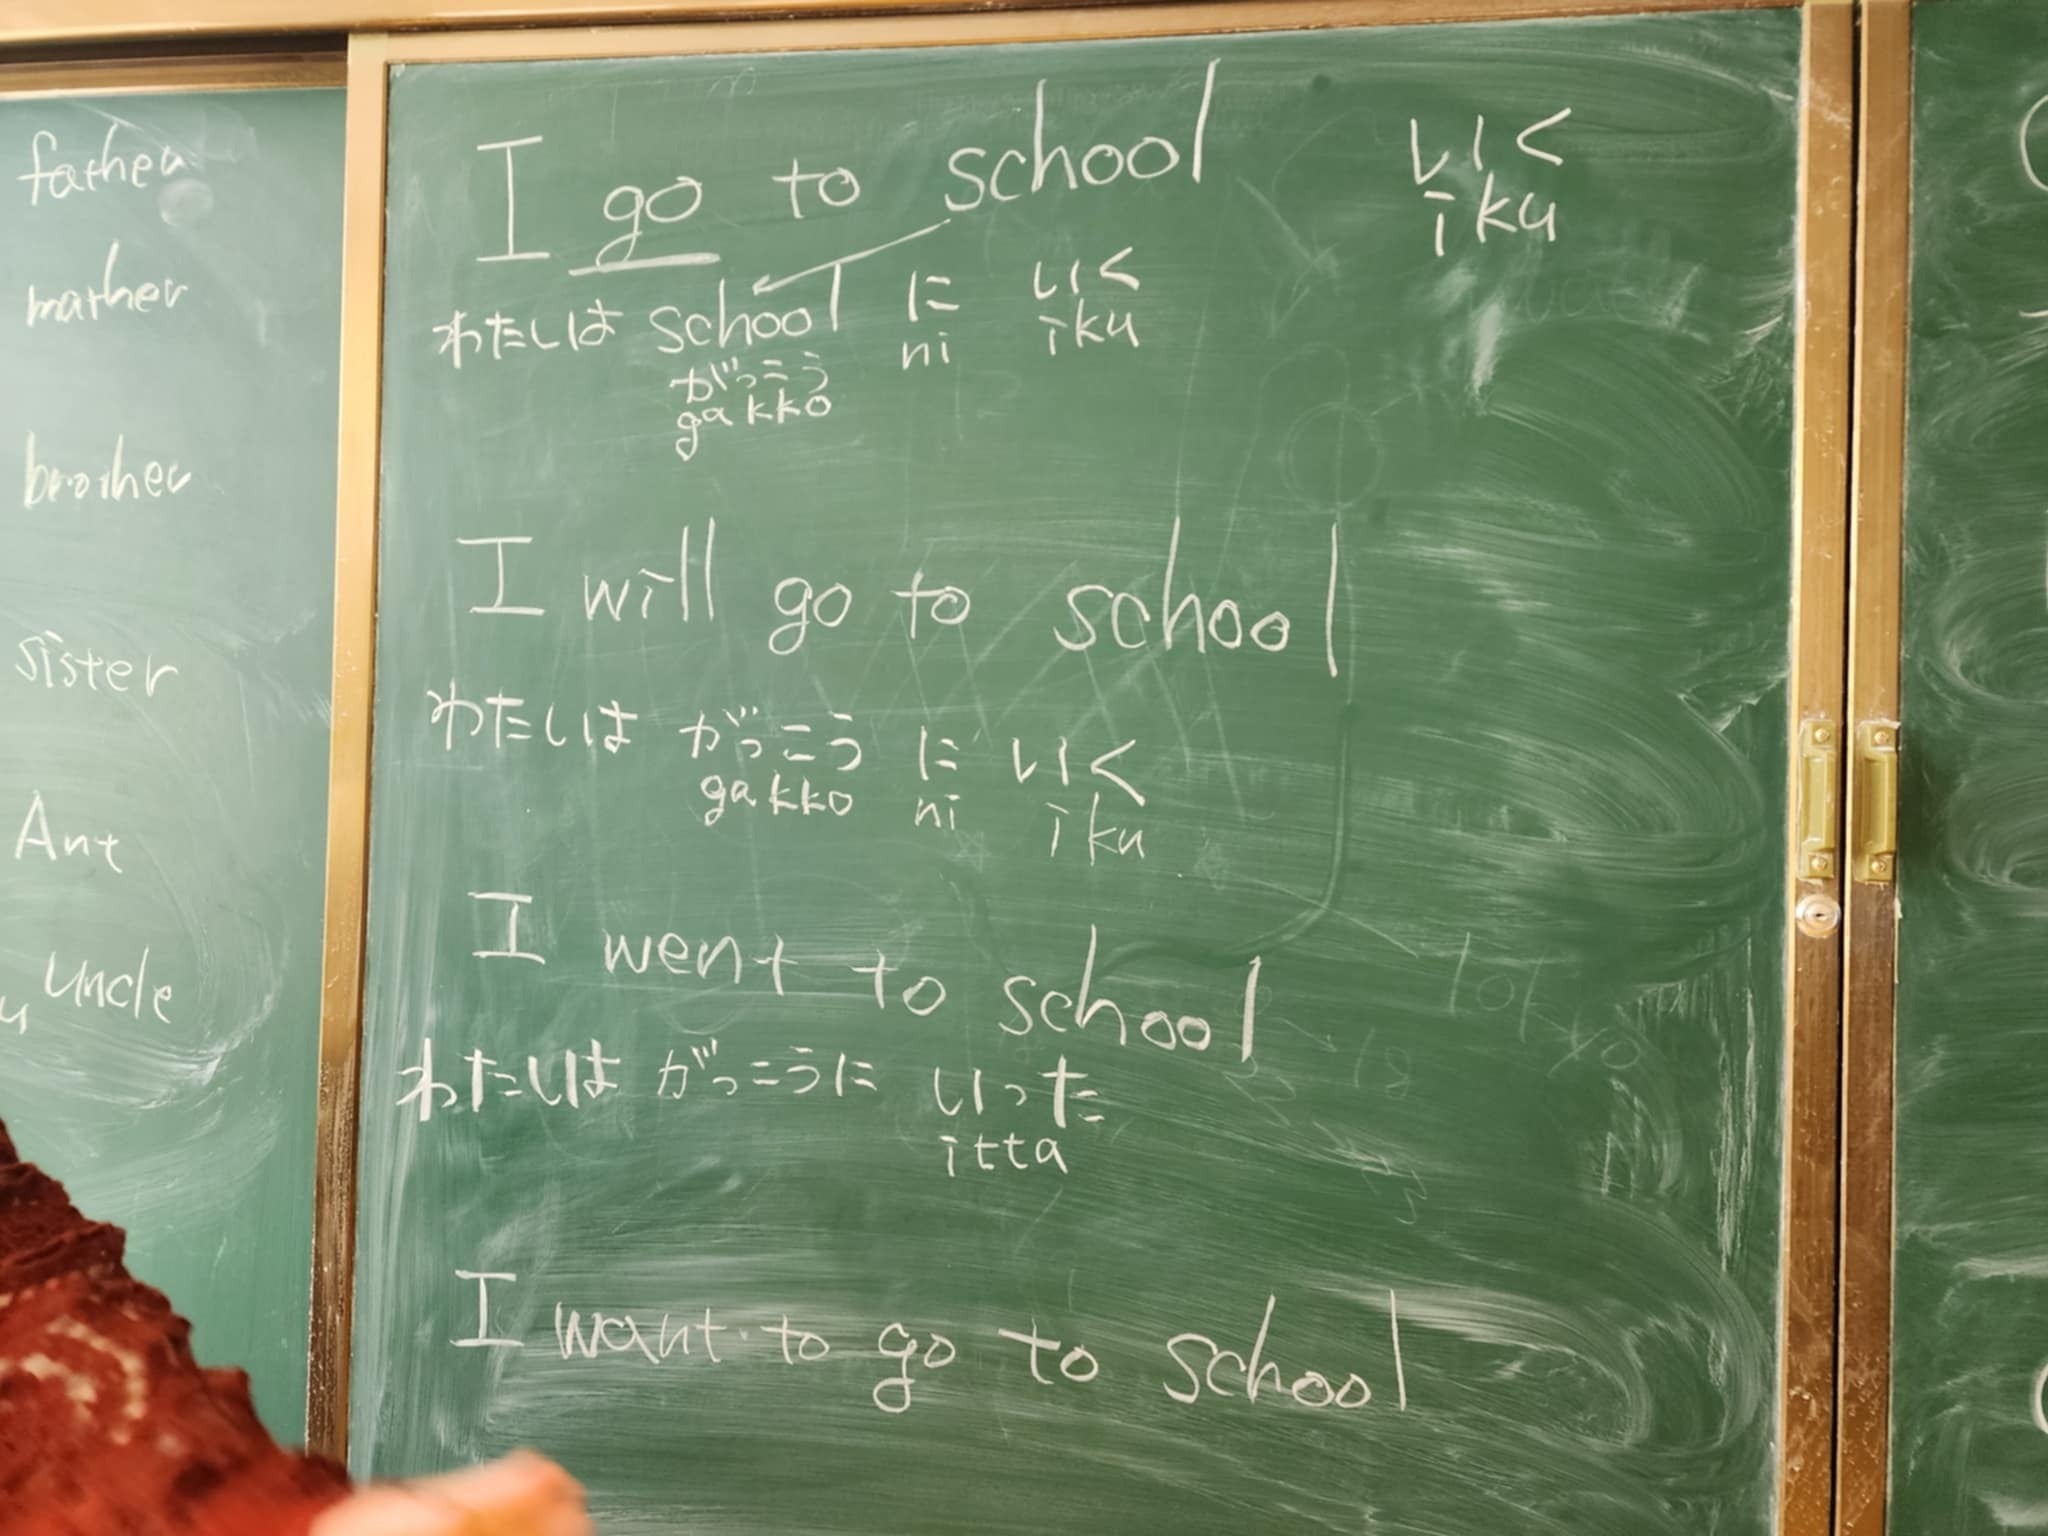 father
mather
brother
sister
Ant
uncle
I go to school
いく
iku
わたしは school に いく
がっこう ni iku
gakko
I will go to school
わたしは がっこう に いく
gakko ni iku
I went to school
わたしは がっこうに いった
itta
I want to go to school